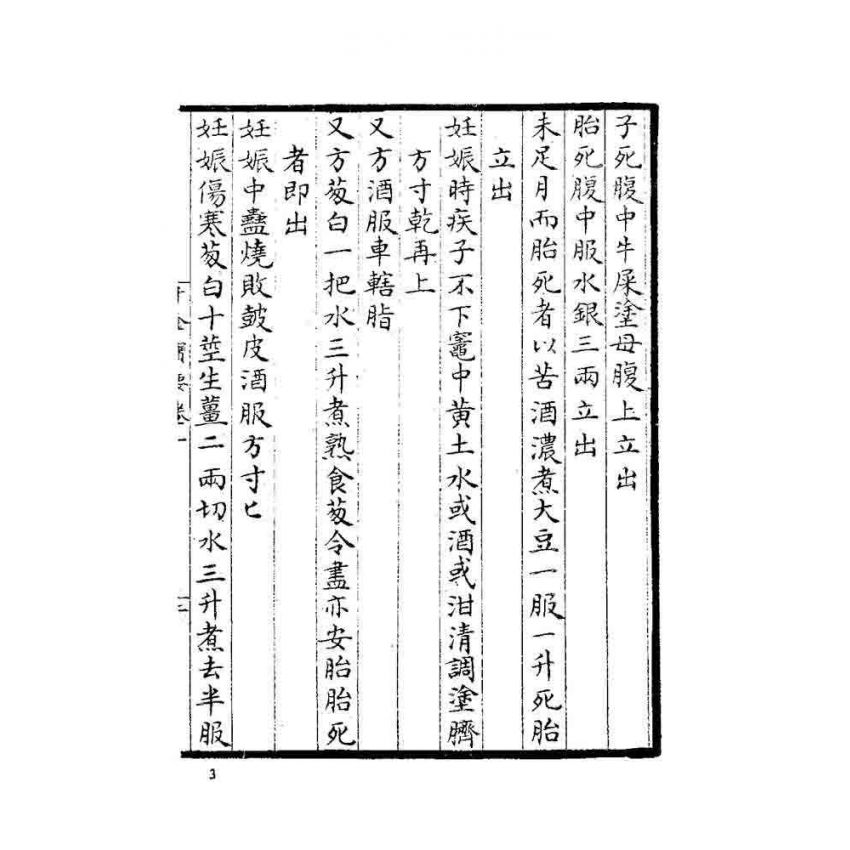 子死腹中牛屎塗母腹上立出
胎死腹中服水銀三兩立出
未足月而胎死者以苦酒濃煮大豆一服一升死胎
立出
妊娠時疾子不下竈中黃土水或酒或泔清調塗臍
方寸乾再上
又方酒服車轄脂
又方葱白一把水三升煮熟食葱令盡亦安胎胎死
者即出
妊娠中蠱燒敗皷皮酒服方寸匕
妊娠傷寒葱白十莖生薑二兩切水三升煮去半服
卷一
三
3